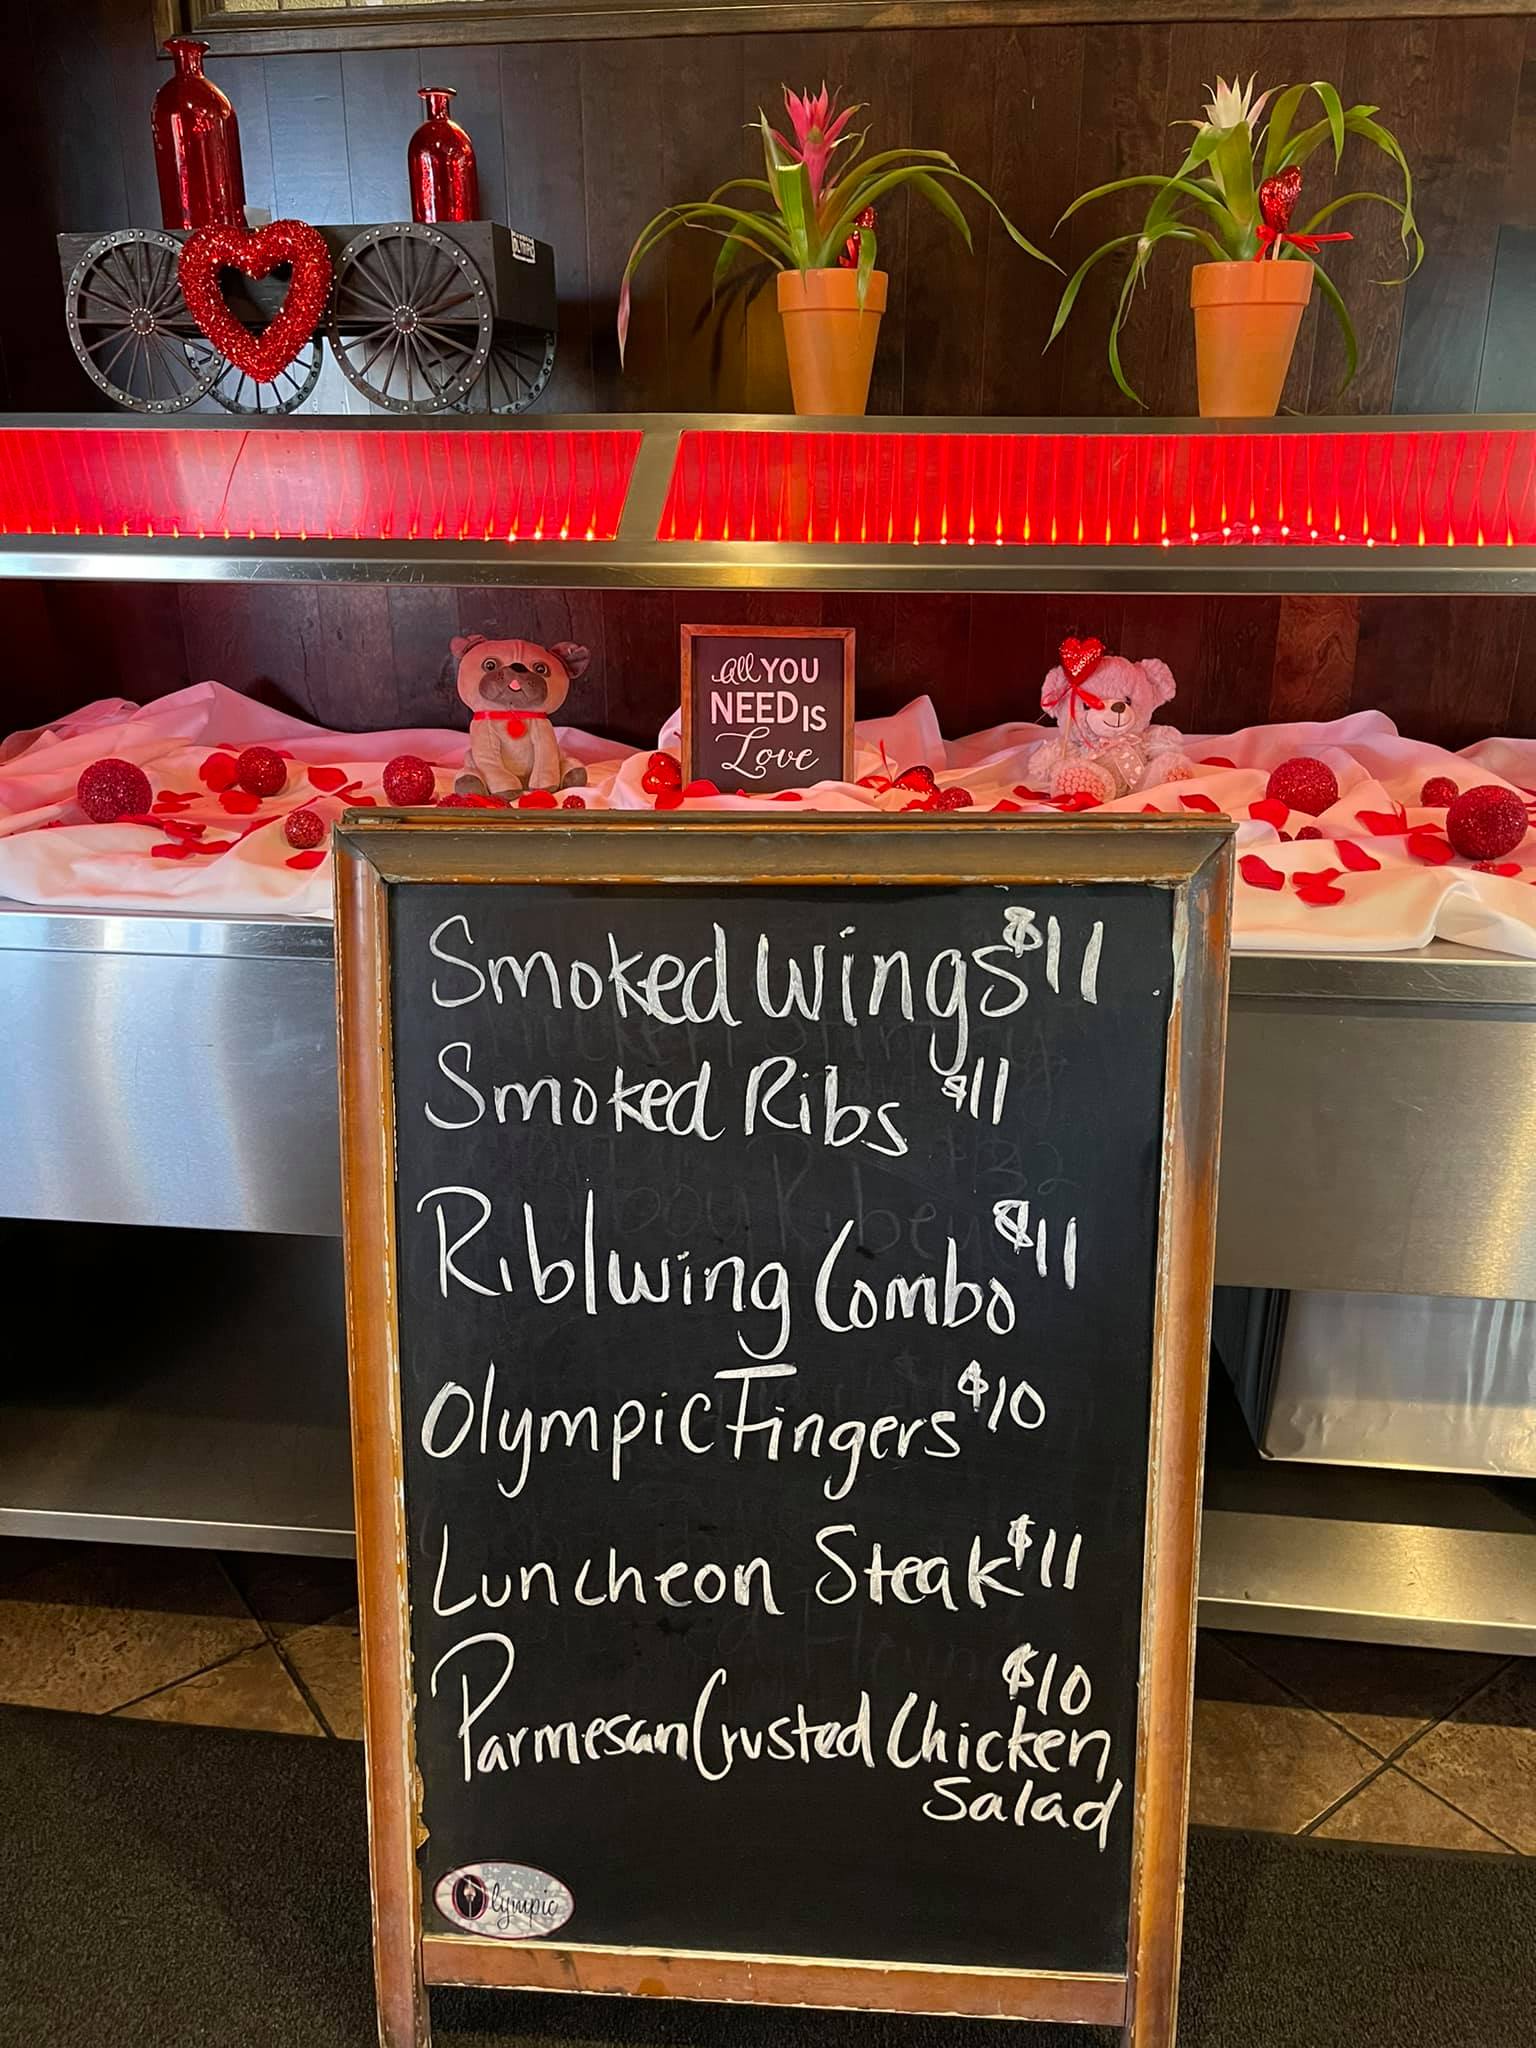 OLYMPIC
all YOU
NEED IS
Love
Smoked Wings $11
Smoked Ribs $11
Rib/Wing Combo $11
Olympic Fingers $10
Luncheon Steak $11
$10
Parmesan Crusted Chicken
Salad
Olympic